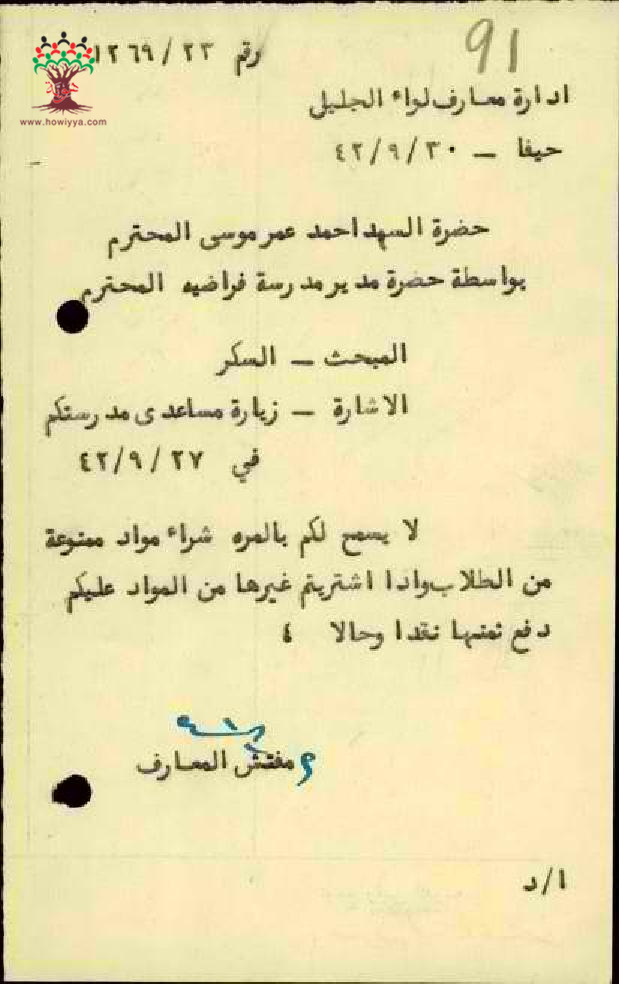 91
رقم ٢٣/١٢٦٩
www.howiyya.com
ادارة معارف لواء الجليل
حيفا – ٤٢/٩/٣٠
حضرة السيد احمد عمر موسى المحترم
بواسطة حضرة مدير مدرسة فراضيه المحترم
المبحث – السكر
الاشارة – زيارة مساعدى مدرستكم
في ٤٢/٩/٢٧
لا يسمح لكم بالمره شراء مواد ممنوعة
من الطلاب واذا اشتريتم غيرها من المواد عليكم
دفع ثمنها نقدا وحالا ٤
مفتش المعارف
ا/د